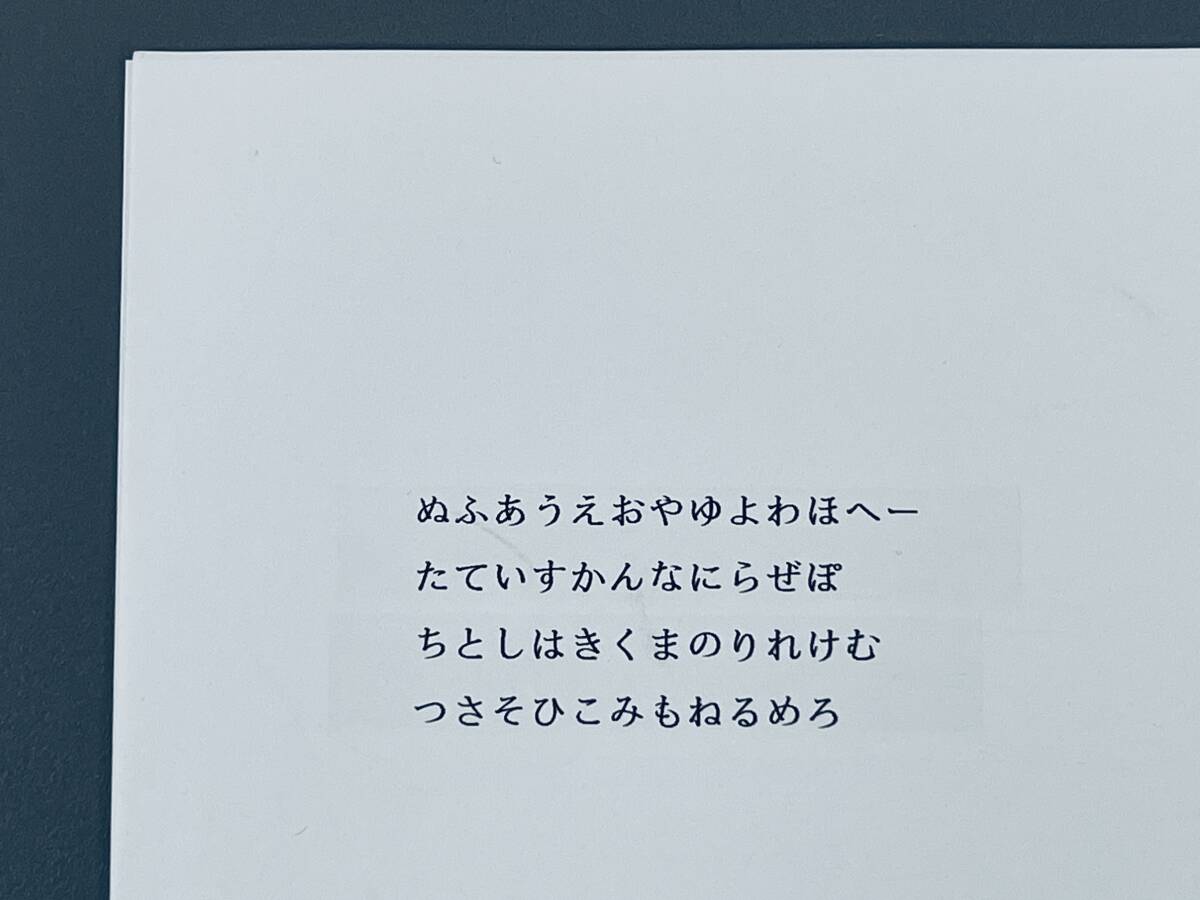 ぬふあうえおやゆよわほへー
たていすかんなにらぜぽ
ちとしはきくまのりれけむ
つさそひこみもねるめろ